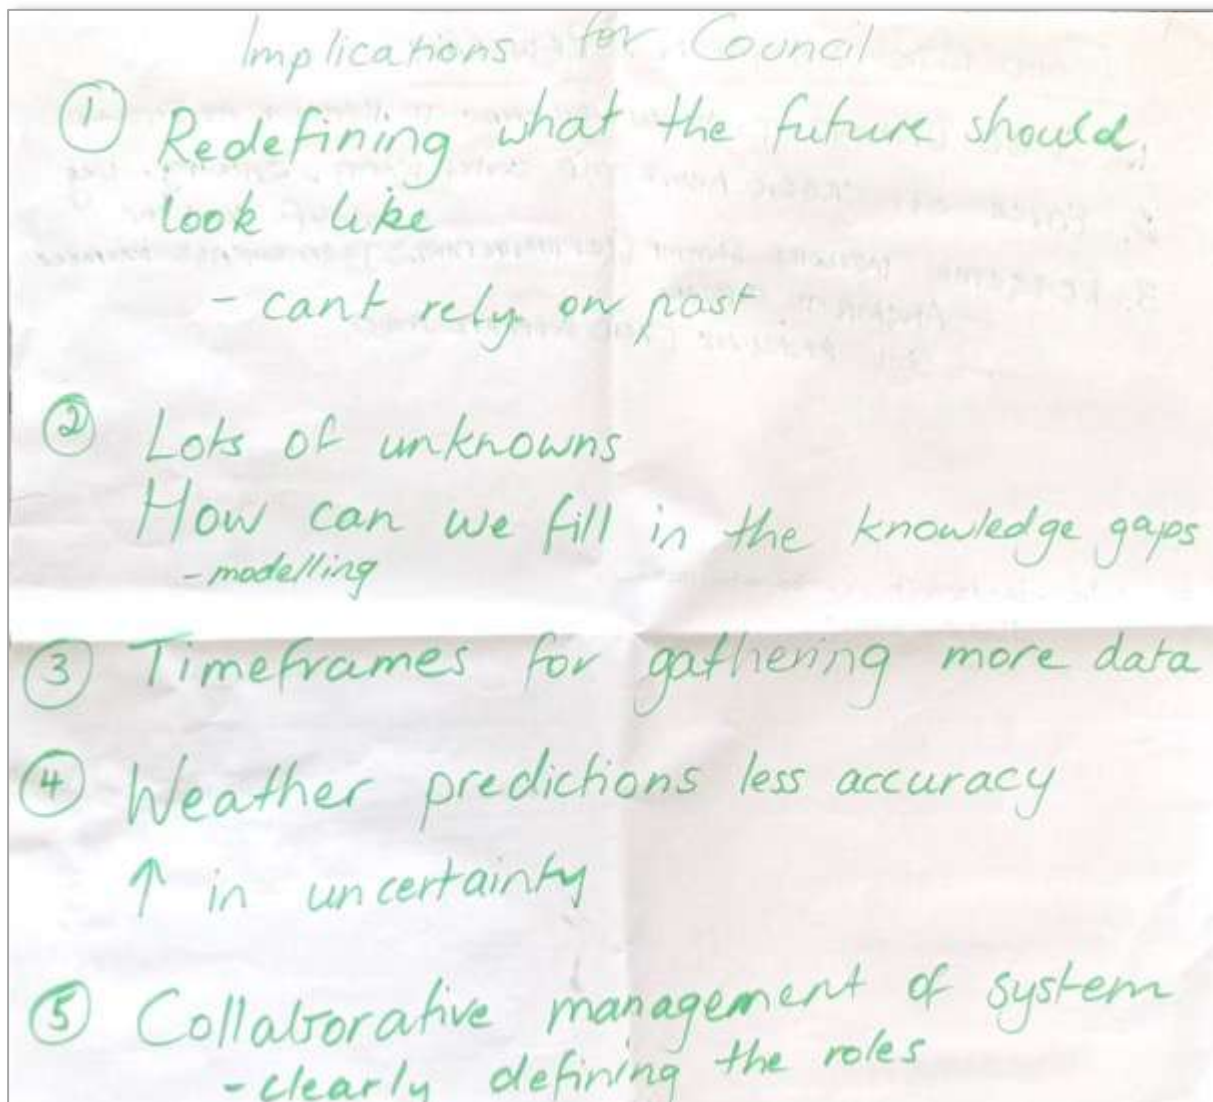 Implications for Council
① Redefining what the future should
look like
- cant rely on past
② Lots of unknowns
How can we fill in the knowledge gaps
- modelling
③ Timeframes for gathering more data
④ Weather predictions less accuracy
↑ in uncertainty
⑤ Collaborative management of system
- clearly defining the roles